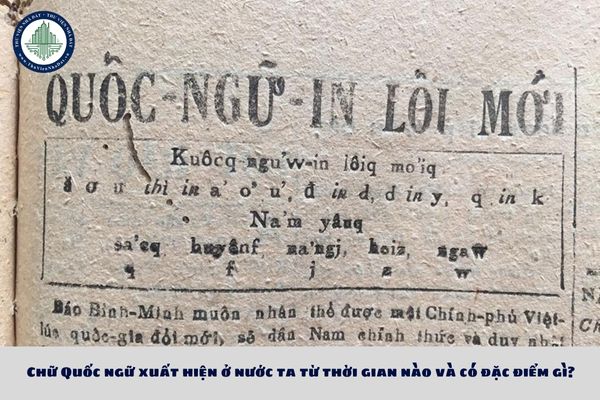 THƯ VIỆN NHÀ ĐẤT
www.ThuVienNhaDat.vn
QUỐC-NGỮ-IN LỐI MỚI
Kuôcq-ngu'w-in lôiq mo'iq
ă ơ ư thì in a' o' u', đ in d, d in y, q in k
Na'm yâuq
sa'cq, huyênf, na'ngj, hoiz, ngaw
q f j z w
Báo Bình-Minh muốn nhân thể được một Chính-phủ Việt-
lúc quốc-gia đổi mới, sẽ dân Nam chính thức và duy nhất
Chữ Quốc ngữ xuất hiện ở nước ta từ thời gian nào và có đặc điểm gì?